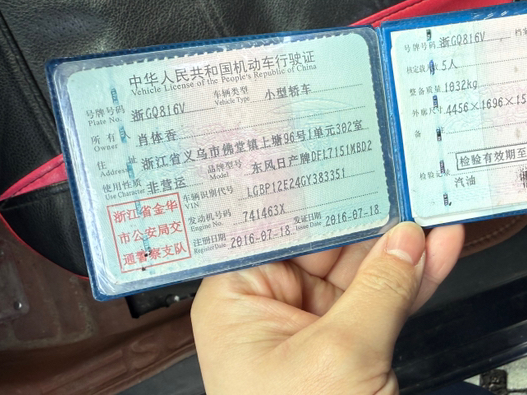 中华人民共和国机动车行驶证
Vehicle License of the People's Republic of China
号牌号码 浙GQ816V 车辆类型 小型轿车
Plate No. Vehicle Type
所有人 肖体香
Owner
住址 浙江省义乌市佛堂镇上塘96号1单元302室
Address
使用性质 非营运 品牌型号 东风日产牌DFL7151MBD2
Use Character Model
车辆识别代号 LGBP12E24GY383351
VIN
发动机号码 741463X
Engine No.
注册日期 2016-07-18 发证日期 2016-07-18
Register Date Issue Date
浙江省金华
市公安局交
通警察支队
号牌号码 浙GQ816V 档案
核定 5人
整备质量 1032kg
外廓尺寸 4456×1696×15
备
检验有效期至
检验记录
汽油